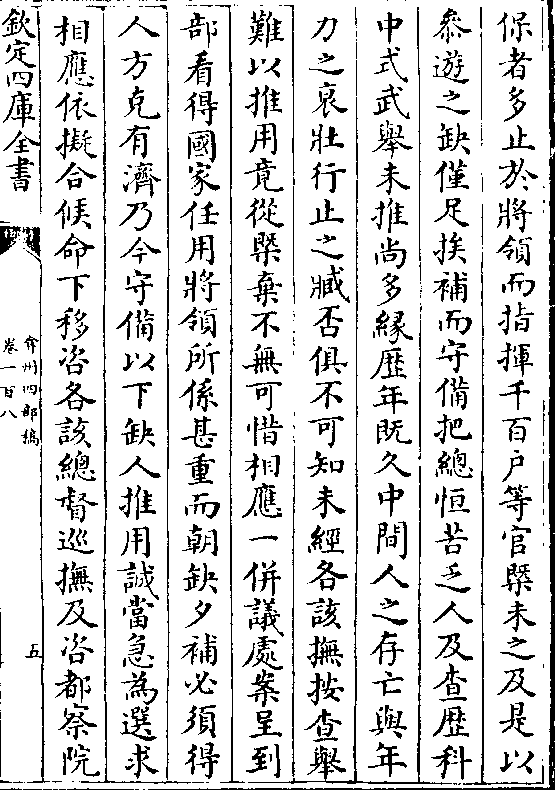 保者多止於將領而指揮千百户等官槩未之及是以
叅遊之缺僅足挨補而守備把總恒苦乏人及查歴科
中式武舉未推尚多縁歴年既久中間人之存亡與年
力之衰壯行止之臧否俱不可知未經各該撫按查舉
難以推用竟從槩棄不無可惜相應一併議處案呈到
部看得國家任用將領所係甚重而朝缺夕補必須得
人方克有濟乃今守備以下缺人推用誠當急為選求
相應依擬合候命下移咨各該總督巡撫及咨都察院
欽定四庫全書
弇州四部稿
卷一百八
五